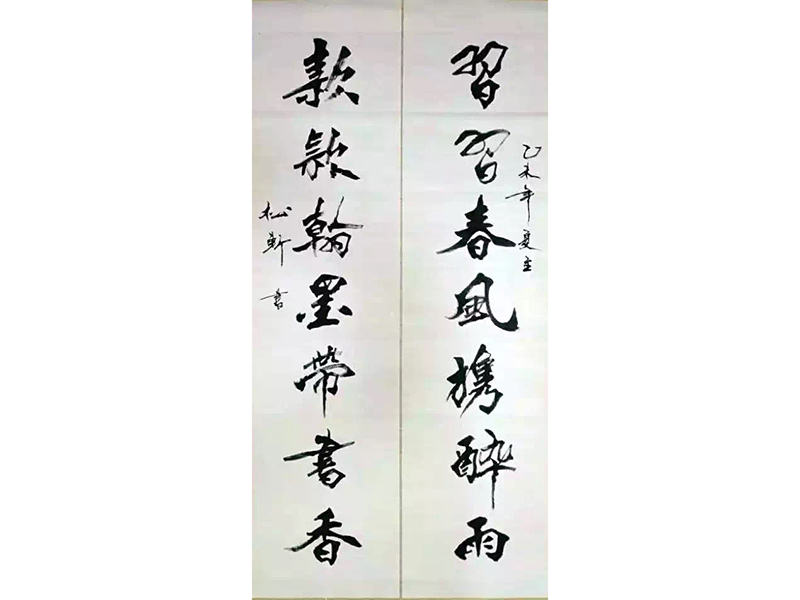 習習春風攜醉雨
乙未年夏至
款款翰墨帶書香
松軒書